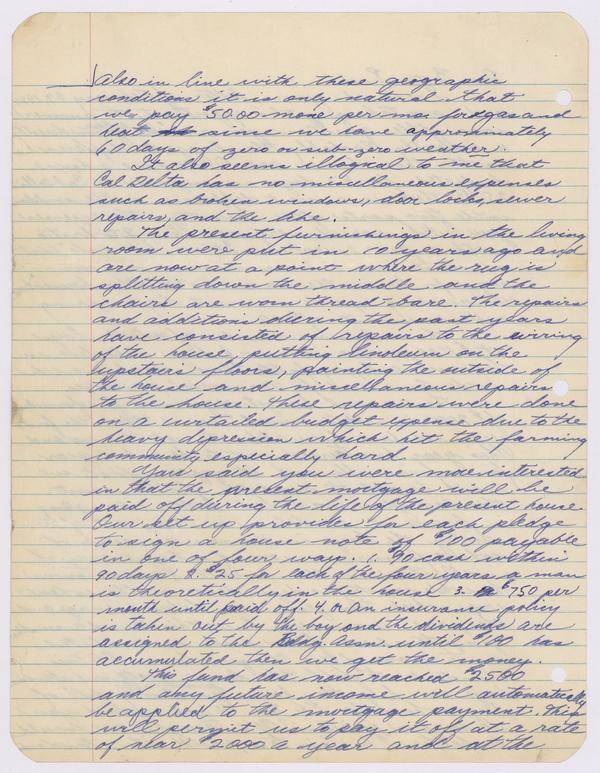 Also in line with these geographic
conditions it is only natural that
we pay $50.00 more per mo. for gas and
heat since we have approximately
60 days of zero or sub-zero weather.
It also seems illogical to me that
Cal Delta has no miscellaneous expenses
such as broken windows, door locks, sewer
repairs, and the like.
The present furnishings in the living
room were put in 10 years ago and
are now at a point where the rug is
splitting down the middle and the
chairs are worn thread-bare. The repairs
and additions during the past years
have consisted of repairs to the wiring
of the house, putting linoleum on the
upstairs floors, painting the outside of
the house and miscellaneous repairs
to the house. These repairs were done
on a curtailed budget expense due to the
heavy depression which hit the farming
community especially hard.
You said you were more interested
in that the present mortgage will be
paid off during the life of the present house
Our set up provides for each pledge
to sign a house note of $100 payable
in one of four ways. 1. $90 cash within
90 days 2. $25 for each of the four years a man
is theoretically in the house 3. $750 per
month until paid off. 4. or an insurance policy
is taken out by the boy and the dividends are
assigned to the Bldg. Assn. until $100 has
accumulated then we get the money.
This fund has now reached $2500
and any future income will automatically
be applied to the mortgage payment. This
will permit us to pay it off at a rate
of near $2000 a year and at the